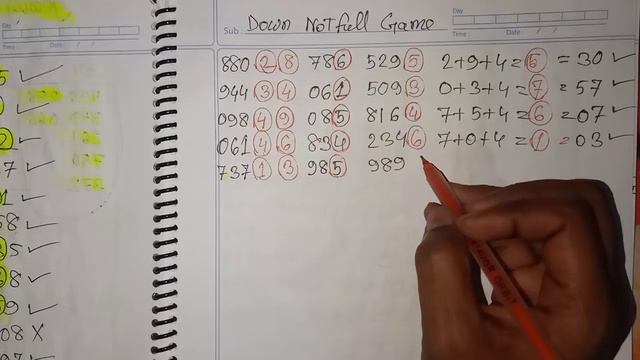 Day
Time
Date
Sub: Down Not full Game
Day
Time
Date
880 2 8 786 529 5 2+9+4=5 =30 ✓
944 3 4 061 509 3 0+3+4=7 =57 ✓
098 4 9 085 816 4 7+5+4=6 =07 ✓
061 4 6 834 234 6 7+0+4=1 =03 ✓
737 1 3 985 989
5 ✓
✓
2 ✓
7 ✓
1 ✓
58 ✓
35 ✓
38 ✓
59 ✓
08 X
97 ✓